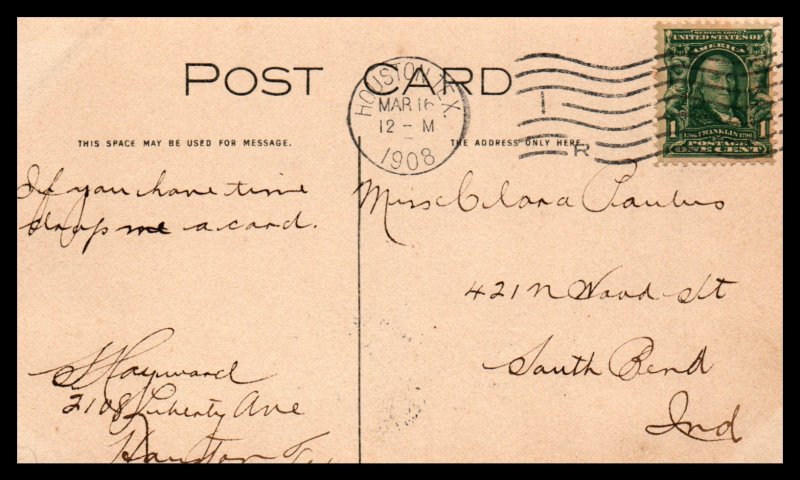 POST CARD
HOUSTON, TEX.
MAR 16
12 - M
1908
R
SERIES 1902
UNITED STATES OF
AMERICA
1 FRANKLIN 1
POSTAGE
ONE CENT
THIS SPACE MAY BE USED FOR MESSAGE.
THE ADDRESS ONLY HERE.
If you have time
drop me a card.
S Hayward
2108 Liberty Ave
Houston Tex
Miss Clara Paulus
421 N Wood St
South Bend
Ind